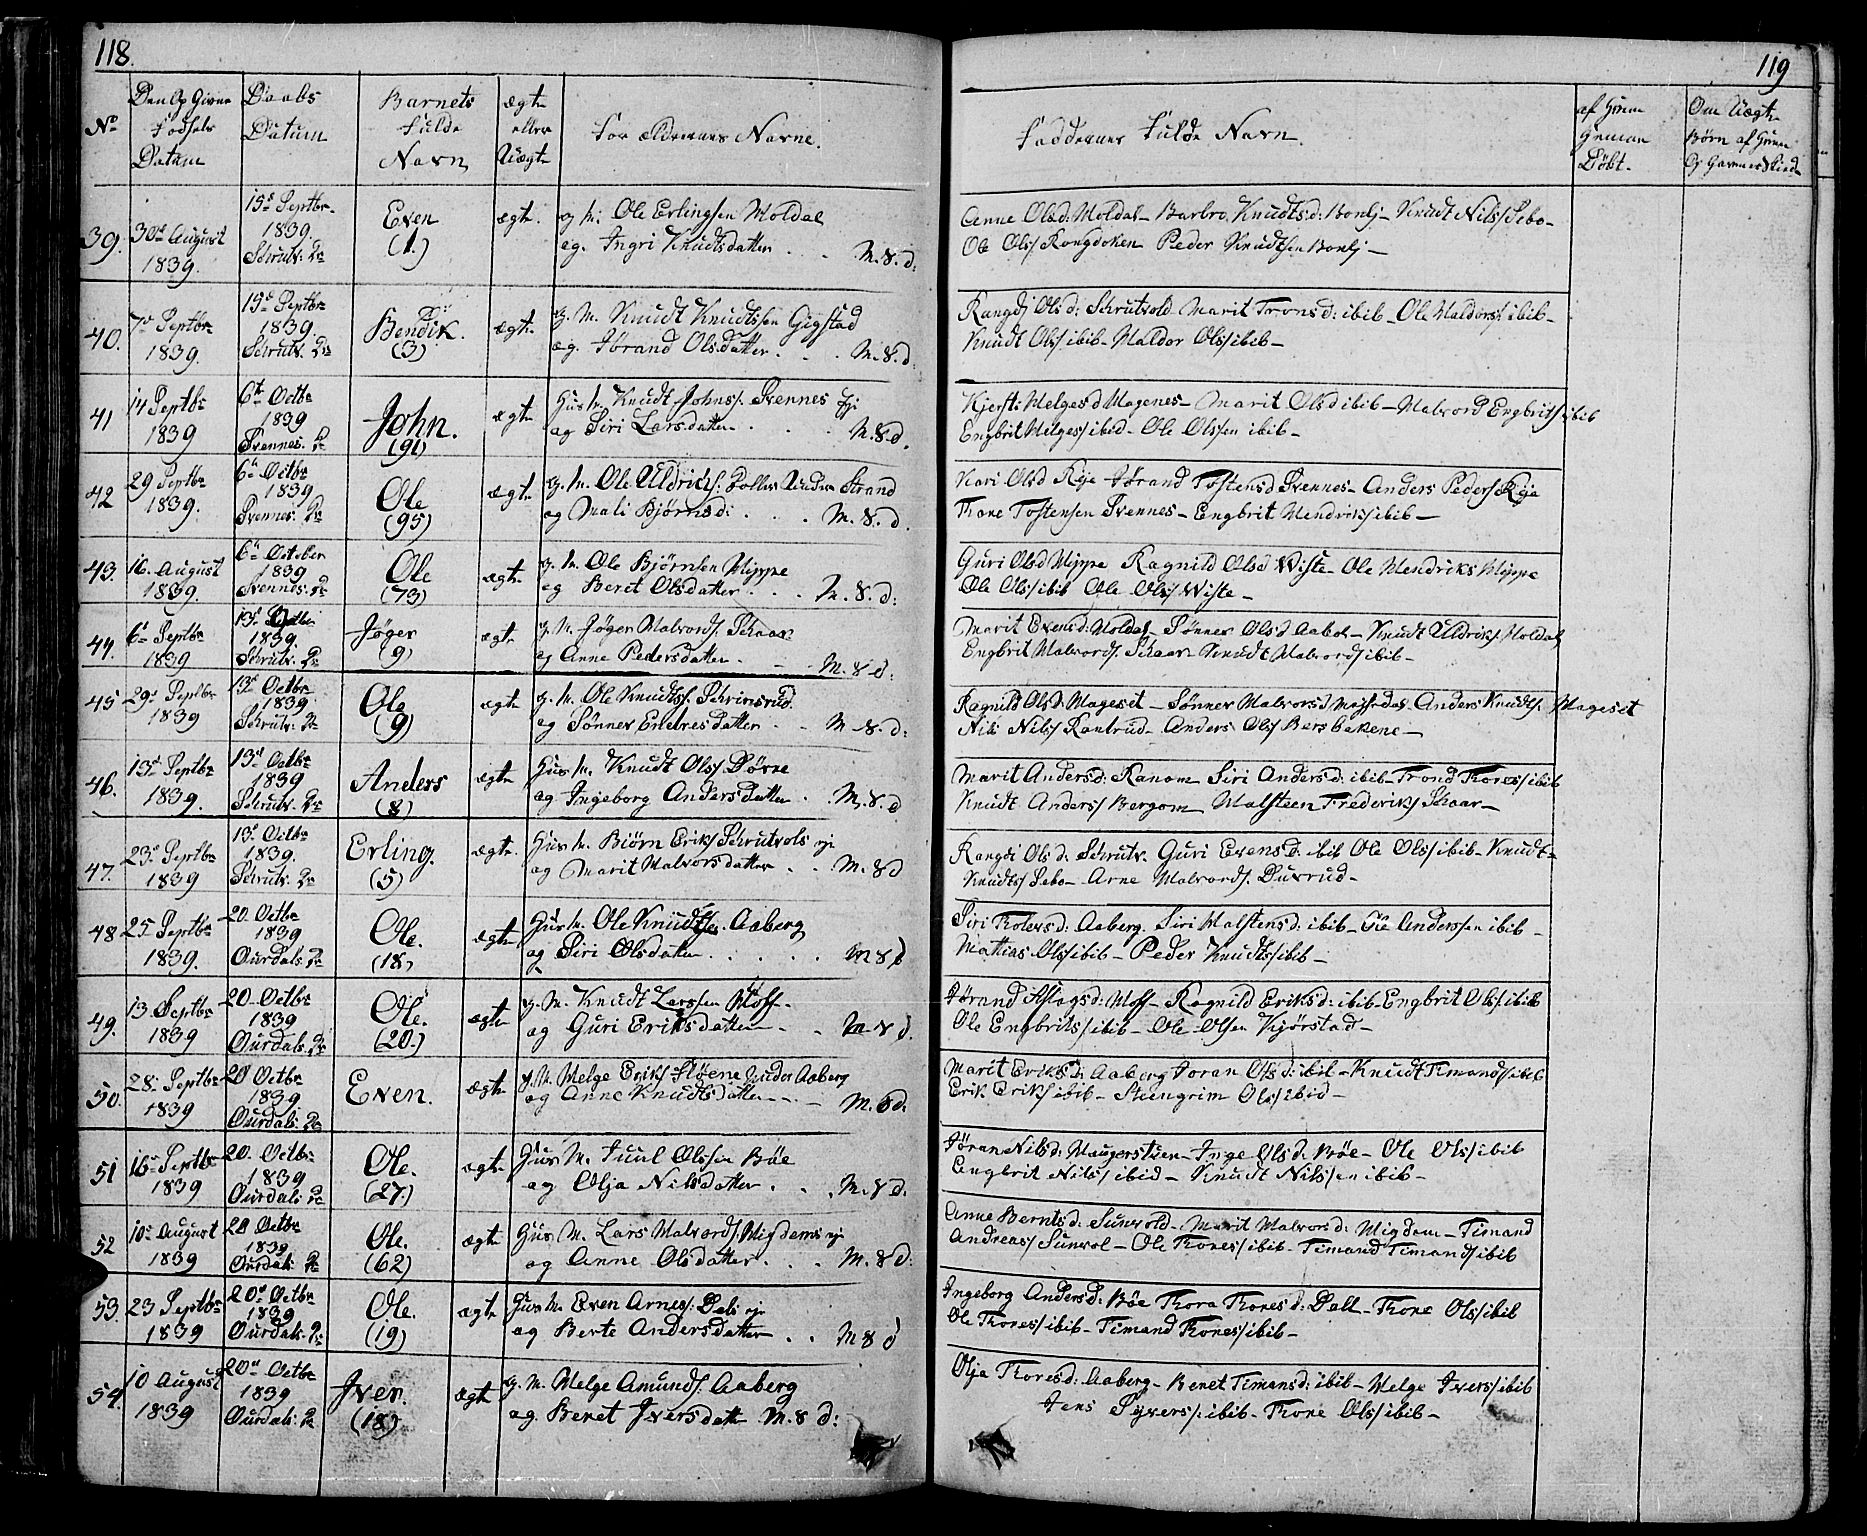 118.
119
No
Den Op Givne Fødsels Datum
Daabs Datum
Barnets Fulde Navn
ægte eller Uægte
Forældrenes Navne.
Faddernes Fulde Navn
Døbt.
Om Uægte Børn af
39. 30te August 1839. 15de Septbr. 1839. Schrutv: K: Even (1.) ægte.
g. M. Ole Erlingsen Moldal
og. Ingri Knudtsdatter . . . M. 8. d:
Anne Olsd: Moldal - Barbro Knudtsd: Bonli - Knudt Nils/ Sebo -
Ole Ols/ Rongdoken Peder Knudtsen Bonli -
40. 7de Septbr 1839. 15de Septbr 1839. Schrutv. K: Bendik. (3) ægte
g. M. Knudt Knudtsen Gigstad
og. Jørand Olsdatter . . . M. 8. d:
Rangdi Ols d: Schrutvold Marit Trons d: ibib - Ole Haldors/ ibib -
Knudt Ols/ ibib - Haldor Ols/ ibib -
41 14 Septbr 1839 6te Octbr 1839 Svennes: K: John. (91) ægte
Hus M. Knudt Johns/. Svennes eje
og Siri Larsdatter . . . . M. 8. d.
Kjersti Helgesd Hagenes - Marit Olsd ibib - Halvord Engbrits/ ibib
Engbrit Helges/ ibid - Ole Olssen ibib -
42 29 Septbr 1839. 6te Octbr 1839 Svennes. K: Ole (95) ægte
g. M. Ole Uldriks/. Under Strand
og Mali Bjørnsd: . . . M. 8. d.
Kari Olsd Rye Jørand Tostensd Svennes - Anders Peders/ Rye
Thore Tostensen Svennes - Engbrit Hendriks/ ibib -
43. 16. August 1839. 6te October 1839 Svennes. K: Ole (73) ægte
g. M. Ole Bjørnsen Hippe
og Berit Olsdatter . . . M. 8. d:
Guri Olsd Hippe Ragnild Olsd Wiste - Ole Hendriks Hippe
Ole Ols/ ibib Ole Ols/ Wiste -
44. 6te Septbr 1839 13de Octbr 1839 Schrutv. K: Jøger (9) ægte
g. M. Jøger Halvords/. Schaar
og Anne Pedersdatter . - - M. 8 d:
Marit Evensd: Moldal - Sønner Olsd Aabol - Knudt Uldriks/ Moldal
Engbrit Halvords/. Schaar Knudt Halvords/ ibib -
45 29de Septbr 1839 13de Octbr 1839. Schrutv. K: Ole (9) ægte
g. M. Ole Knudts/. Schrinsrud
og Sønner Endresdatter . . M. 8. d:
Ragnild Olsd: Mageset - Sønner Halvorsd Anders Knudts/. Mageset
Nils Nils/ Rantrud - Anders Ols/ Bersbakene -
46. 13de Septbr 1839. 13de Octbr 1839 Schrutv. K: Anders (8) ægte
Hus M. Knudt Ols/ Dørre
og Ingeborg Andersdatter . M. 8. d
Marit Andersd: Ranom Siri Andersd: ibib - Trond Thores/ ibib
Knudt Anders/ Bergom Halsteen Frederiks/ Schaar -
47. 23de Septbr 1839 13de Octbr 1839. Schrutv. K: Erling. (5) ægte.
Hus M. Biørn Eriks/ Schrutvols eje
og Marit Halvorsdatter . . M. 8 d
Rangdi Ols d: Schrutv. Guri Evensd: ibib Ole Ols/ ibib - Knudt
Knudts/ Sebo - Arne Halvords/. Duxrud -
48 25de Septbr 1839. 20. Octbr 1839 Ourdals. K: Ole. (18) ægte
Hus M. Ole Knudtsen. Aaberg
og Siri Olsdatter . . . . . M 8 d
Siri Tholevsd: Aaberg. Siri Halstensd: ibib - Ole Anderssen ibib -
Mattias Ols/ ibib - Peder Knudts/ ibib -
49. 13 Septbr 1839 20 Octbr 1839 Ourdals. K: Ole. (20.) ægte
g. M. Knudt Larssen Moss -
og Guri Eriksdatter . . M 8 d.
Jørand Aslagsd: Moss - Ragnild Eriksd: ibib - Engbrit Ols/ ibib
Ole Engbrits/ ibib - Ole Olsen Kjørstad -
50. 28de Septbr 1839 20 Octbr 1839 Ourdals: K: Even. ægte
g. M. Helge Eriks/ Fløene under Aaberg
og Anne Knudtsdatter - - - M. 8 d:
Marit Eriksd: Aaberg Joran Olsd: ibib - Knudt Timands/ ibib
Erik Eriks/ ibib - Steengrim Ols/ ibid -
51 16de Septbr 1839 20. Octbr 1839 Ourdals K: Ole. (27.) ægte
Hus M. Juul Olssen Bøe
og Olja Nilsdatter . . . M. 8 d:
Jøran Nilsd: Haugerstuen - Inge Olsd Bøe - Ole Ols/ ibib
Engbrit Nils/ ibid - Knudt Nils/en ibib -
52 10de August 1839 20 Octbr 1839 Ourdals: K: Ole. (62) ægte
Hus M. Lars Halvords/. Migdems eje
og Anne Olsdatter . . . M. 8 d:
Anne Berntsd: Sunvold - Marit Halvorsd: Migdem - Timand
Andreas/ Sunvol - Ole Thores/ ibib - Timand Timands/ ibib
53. 23 Septbr 1839 20de Octbr 1839 Ourdals. K: Ole. (19) ægte
Hus M. Even Arnes/: Dals eje
og Berte Andersdatter . . M 8 d
Ingeborg Andersd: Bøe Thora Thoresd: Dall - Thore Ols/ ibib
Ole Thores/ ibib - Timand Thores/ ibib -
54. 10 August 1839 20de Octbr 1839 Ourdals: K: Iver. (18) ægte
g. M. Helge Amunds/. Aaberg
og. Beret Iversdatt. M. 8 d:
Olja Thoresd: Aaberg - Beret Timansd: ibib - Helge Ivers/ ibib
Jens Syvers/: ibib - Thore Ols/ ibib -